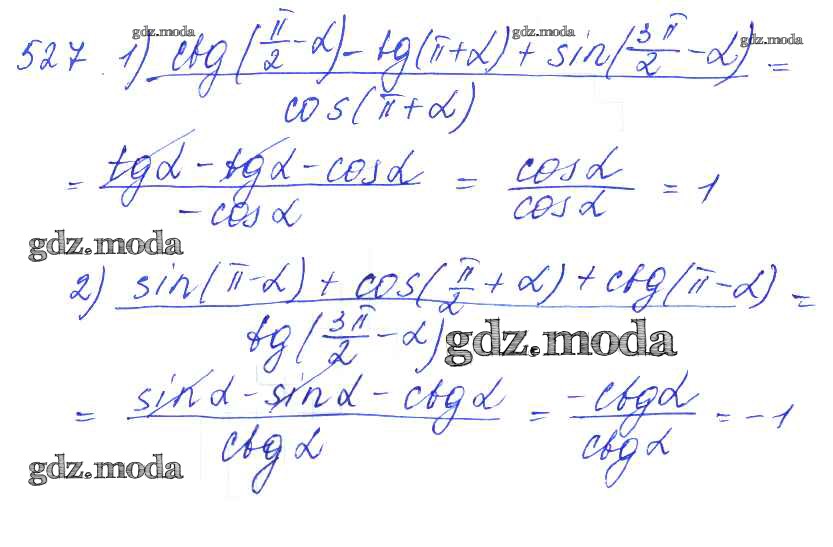 gdz.moda gdz.moda gdz.moda
527. 1) (ctg(π/2 - α) - tg(π + α) + sin(3π/2 - α)) / cos(π + α) =
= (tgα - tgα - cosα) / (-cosα) = cosα / cosα = 1
gdz.moda
2) (sin(π - α) + cos(π/2 + α) + ctg(π - α)) / tg(3π/2 - α) =
gdz.moda
= (sinα - sinα - ctgα) / ctgα = -ctgα / ctgα = -1
gdz.moda